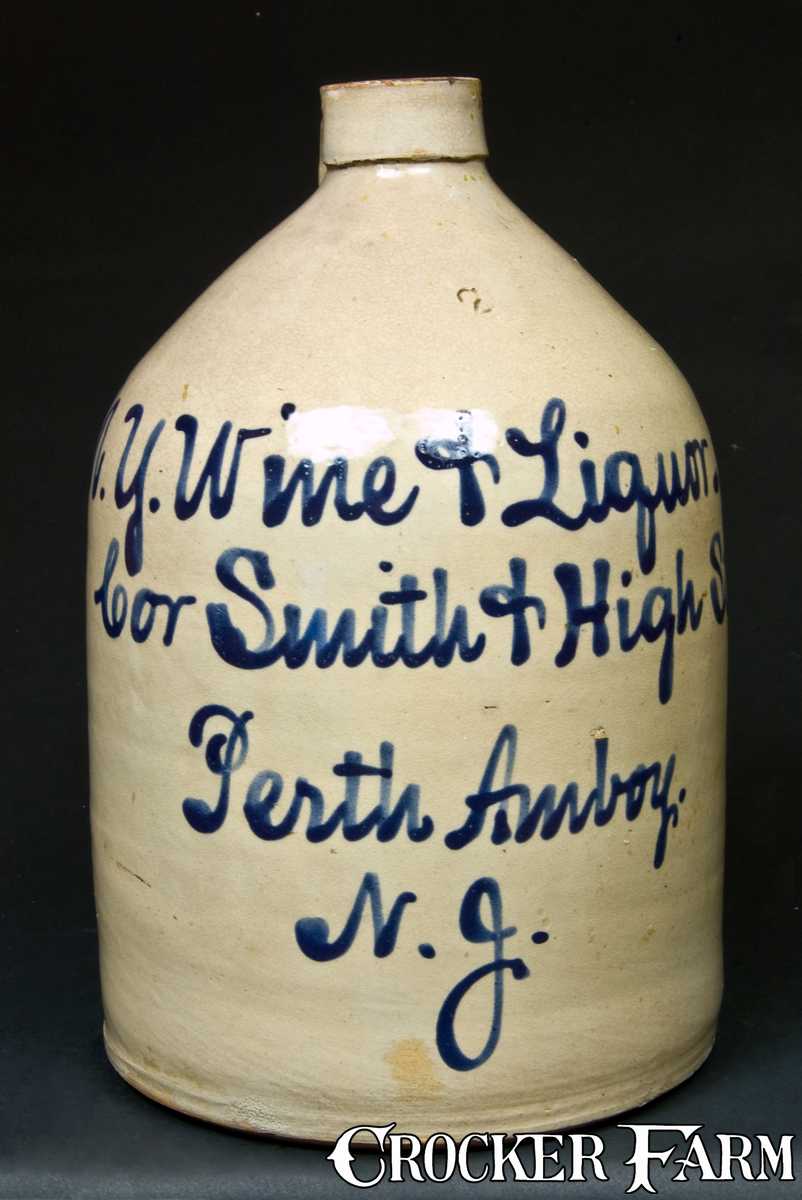 2
N. Y. Wine & Liquor.
Cor Smith & High S
Perth Amboy.
N. J.
CROCKER FARM